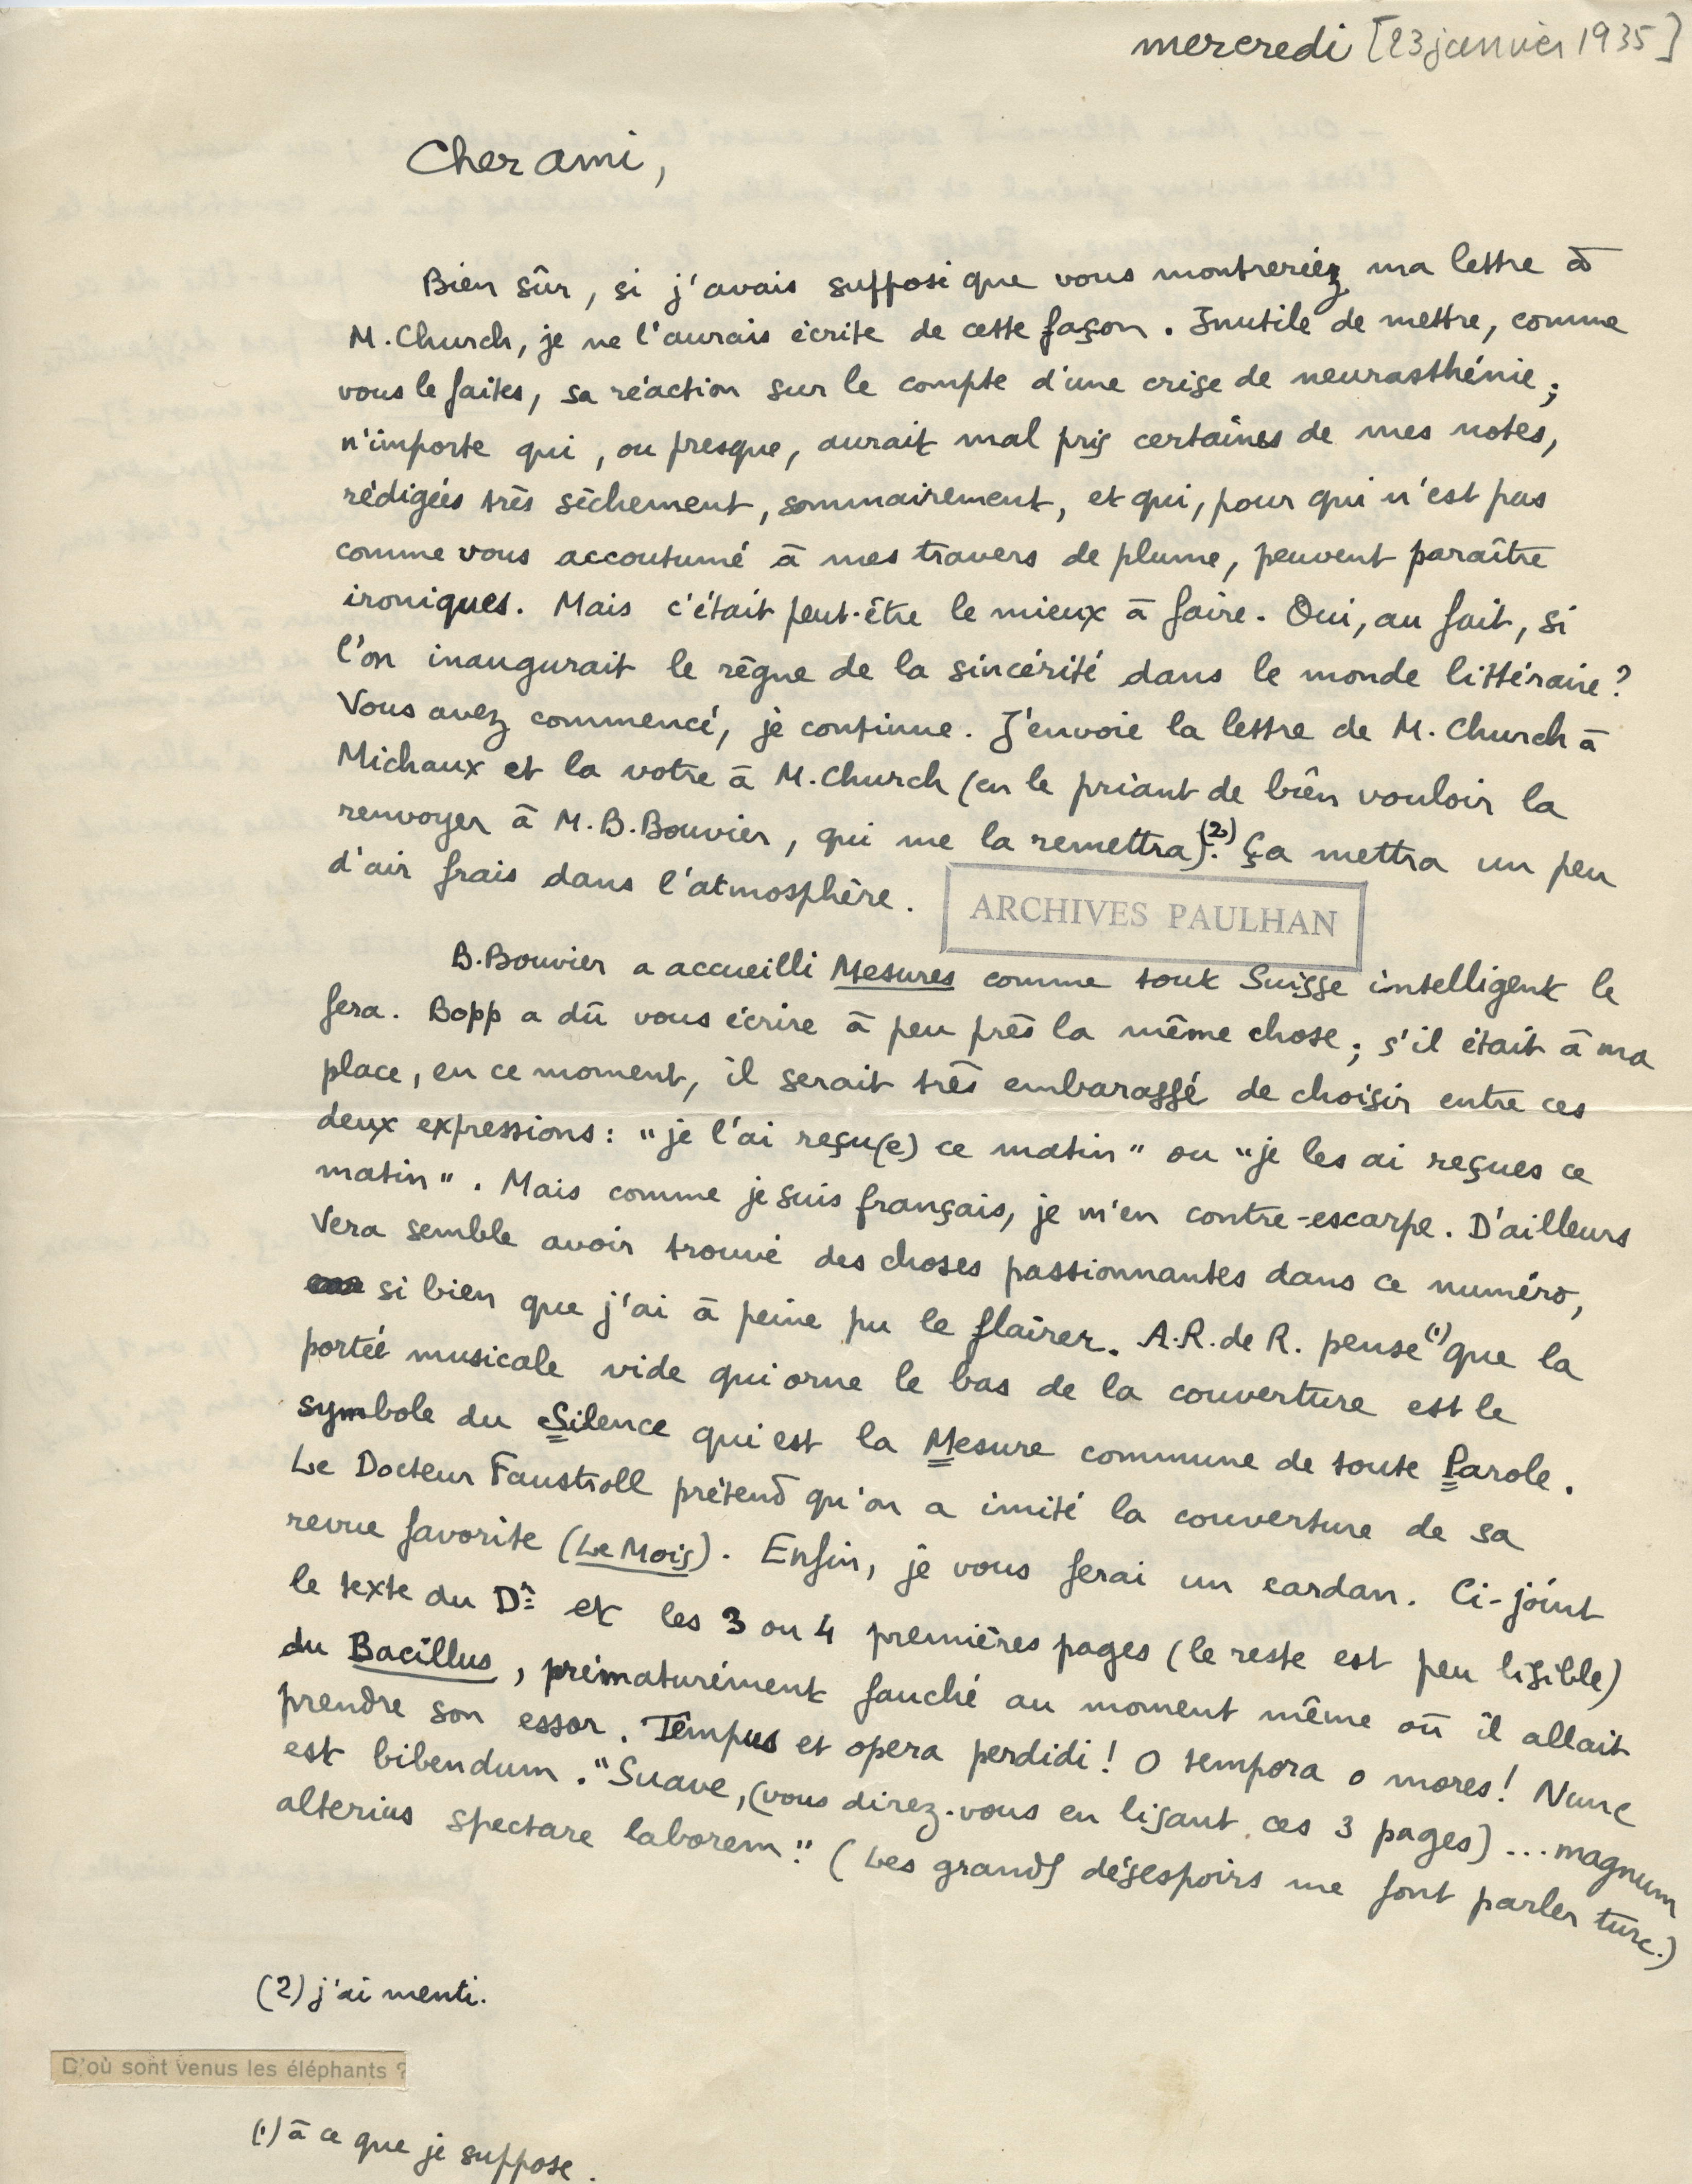 mercredi [23 janvier 1935]
Cher ami,
Bien sûr, si j'avais supposé que vous montreriez ma lettre à
M. Church, je ne l'aurais écrite de cette façon. Inutile de mettre, comme
vous le faites, sa réaction sur le compte d'une crise de neurasthénie;
n'importe qui, ou presque, aurait mal pris certaines de mes notes,
rédigées très sèchement, sommairement, et qui, pour qui n'est pas
comme vous accoutumé à mes travers de plume, peuvent paraître
ironiques. Mais c'était peut-être le mieux à faire. Oui, au fait, si
l'on inaugurait le règne de la sincérité dans le monde littéraire?
Vous avez commencé, je continue. J'envoie la lettre de M. Church à
Michaux et la votre à M. Church (en le priant de bien vouloir la
renvoyer à M. B. Bouvier, qui me la remettra)(2). Ça mettra un peu
d'air frais dans l'atmosphère.
ARCHIVES PAULHAN
B. Bouvier a accueilli Mesures comme tout Suisse intelligent le
fera. Bopp a dû vous écrire à peu près la même chose; s'il était à ma
place, en ce moment, il serait très embarassé de choisir entre ces
deux expressions: "je l'ai reçu(e) ce matin" ou "je les ai reçues ce
matin". Mais comme je suis français, je m'en contre-escarpe. D'ailleurs
Vera semble avoir trouvé des choses passionnantes dans ce numéro,
si bien que j'ai à peine pu le flairer. A.R. de R. pense(1) que la
portée musicale vide qui orne le bas de la couverture est le
symbole du Silence qui est la Mesure commune de toute Parole.
Le Docteur Faustroll prétend qu'on a imité la couverture de sa
revue favorite (Le Mois). Enfin, je vous ferai un cardan. Ci-joint
le texte du Dr et les 3 ou 4 premières pages (le reste est peu lisible)
du Bacillus, prématurément fauché au moment même où il allait
prendre son essor. Tempus et opera perdidi! O tempora o mores! Nunc
est bibendum. "Suave, (vous direz-vous en lisant ces 3 pages) ... magnum
alterius spectare laborem." (Les grands désespoirs me font parler turc.)
(2) j'ai menti.
D'où sont venus les éléphants ?
(1) à ce que je suppose.